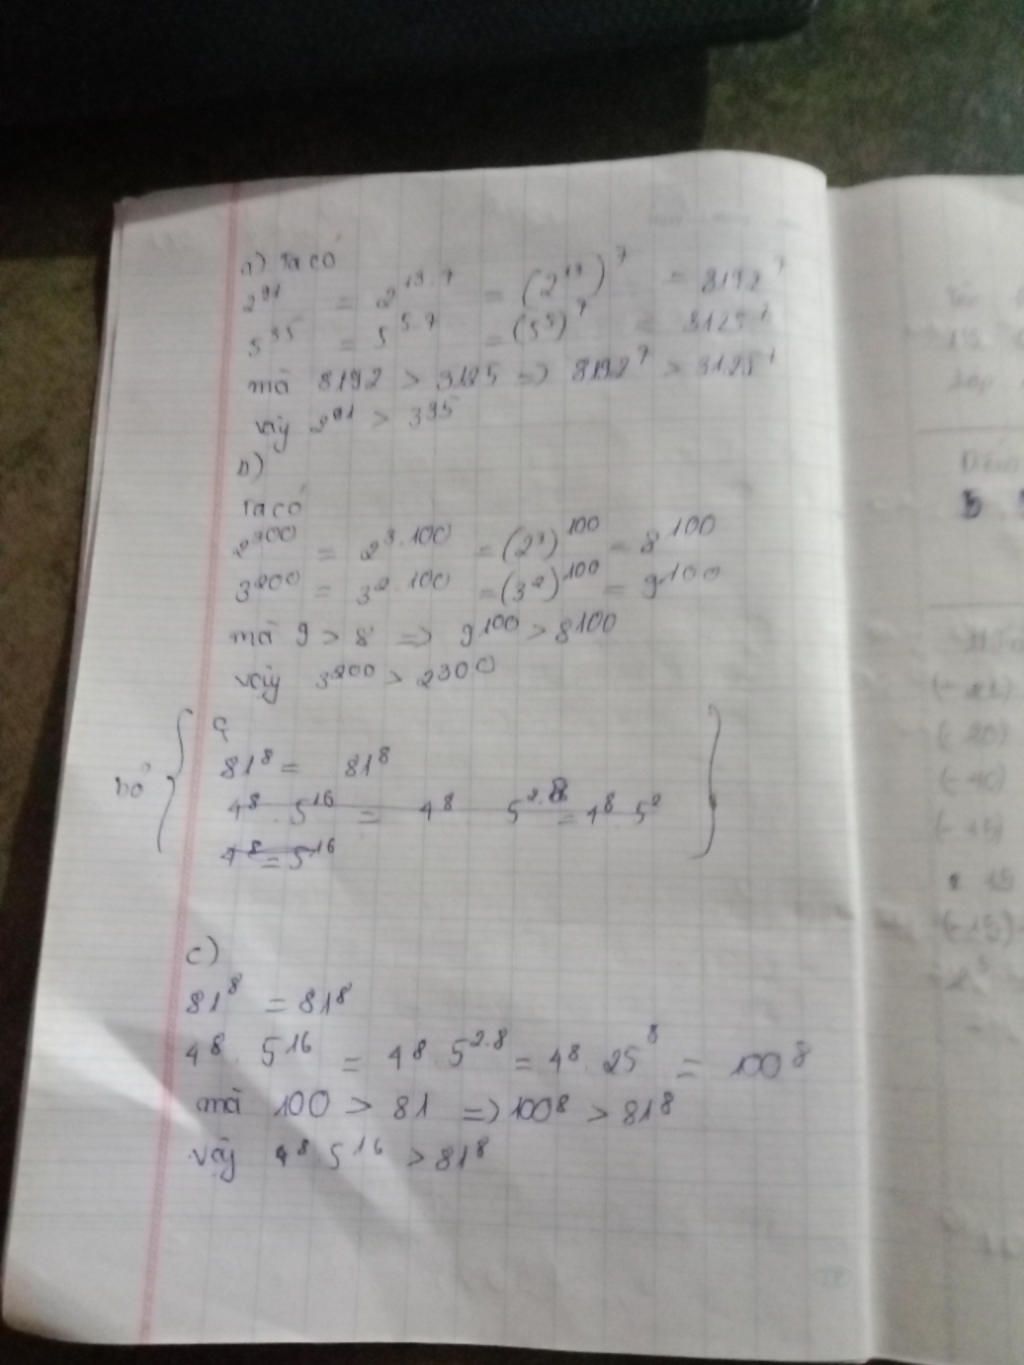 a) Ta có
2^91 = 2^13.7 = (2^13)^7 = 8192^7
5^35 = 5^5.7 = (5^5)^7 = 3125^7
mà 8192 > 3125 => 8192^7 > 3125^7
vậy 2^91 > 3^35
b)
Ta có
2^300 = 2^3.100 = (2^3)^100 = 8^100
3^200 = 3^2.100 = (3^2)^100 = 9^100
mà 9 > 8 => 9^100 > 8^100
vậy 3^200 > 2^300
c
81^8 = 81^8
bỏ
4^8 . 5^16 = 4^8 5^2.8 = 4^8 . 5^2
4^8 = 5^16
c)
81^8 = 81^8
4^8 . 5^16 = 4^8 . 5^2.8 = 4^8 . 25^8 = 100^8
mà 100 > 81 => 100^8 > 81^8
vậy 4^8 . 5^16 > 81^8
(-20)
(-40)
15
(-15)